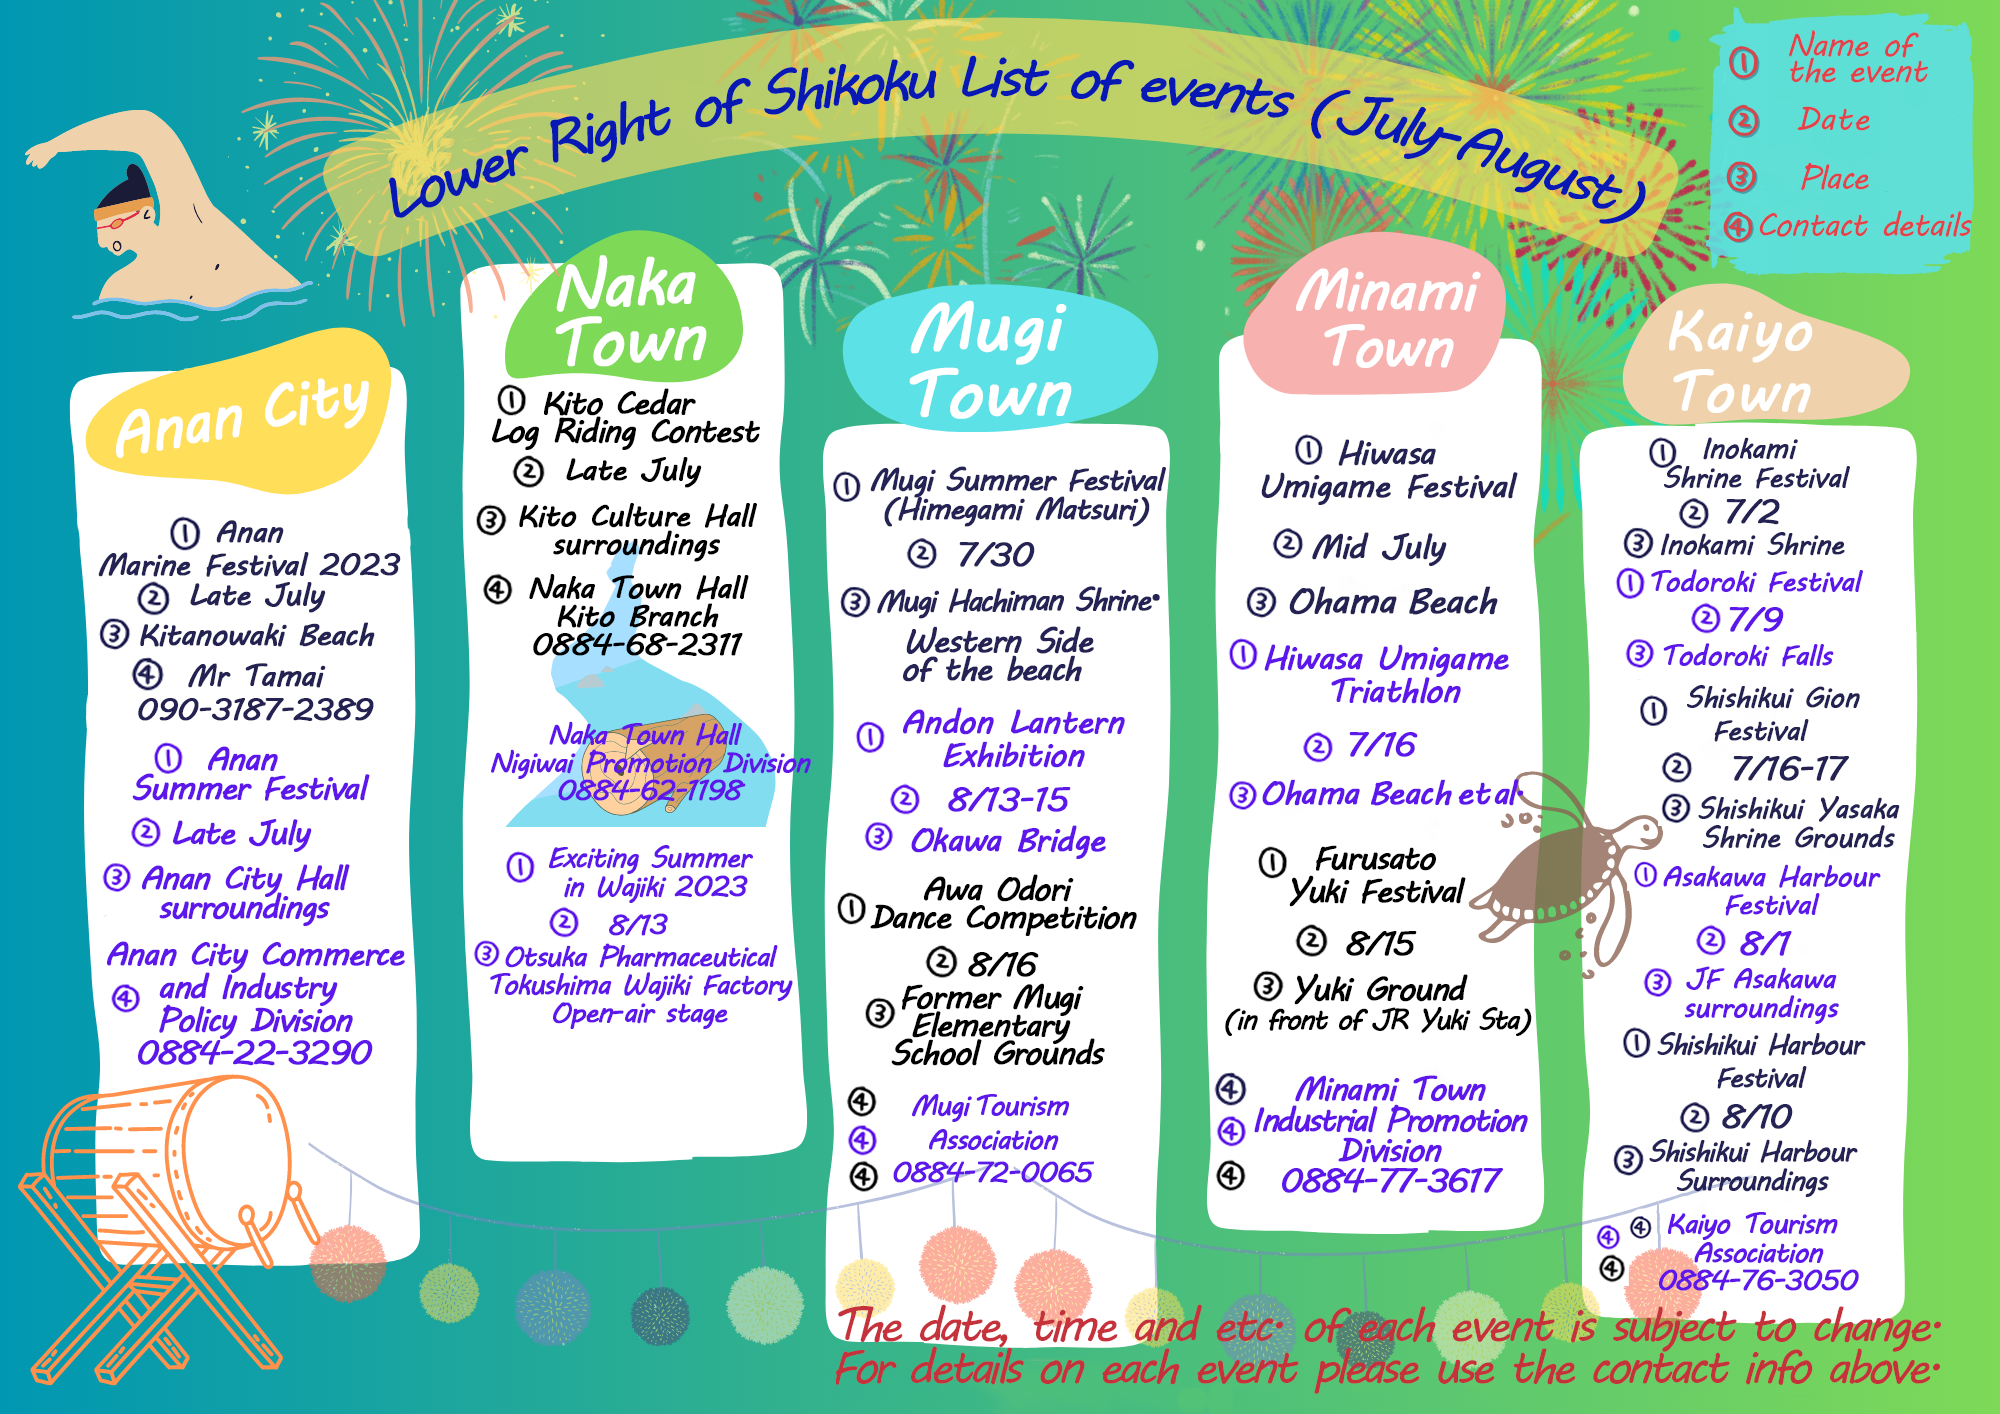 Lower Right of Shikoku List of events (July-August)
① Name of
the event
② Date
③ Place
④ Contact details
Anan City
① Anan
Marine Festival 2023
② Late July
③ Kitanowaki Beach
④ Mr Tamai
090-3187-2389
① Anan
Summer Festival
② Late July
③ Anan City Hall
surroundings
Anan City Commerce
and Industry
④ Policy Division
0884-22-3290
Naka
Town
① Kito Cedar
Log Riding Contest
② Late July
③ Kito Culture Hall
surroundings
④ Naka Town Hall
Kito Branch
0884-68-2311
Naka Town Hall
Nigiwai Promotion Division
0884-62-1198
① Exciting Summer
in Wajiki 2023
② 8/13
③ Otsuka Pharmaceutical
Tokushima Wajiki Factory
Open-air stage
Mugi
Town
① Mugi Summer Festival
(Himegami Matsuri)
② 7/30
③ Mugi Hachiman Shrine·
Western Side
of the beach
① Andon Lantern
Exhibition
② 8/13-15
③ Okawa Bridge
① Awa Odori
Dance Competition
② 8/16
③ Former Mugi
Elementary
School Grounds
④ Mugi Tourism
④ Association
④ 0884-72-0065
Minami
Town
① Hiwasa
Umigame Festival
② Mid July
③ Ohama Beach
① Hiwasa Umigame
Triathlon
② 7/16
③ Ohama Beach et al·
① Furusato
Yuki Festival
② 8/15
③ Yuki Ground
(in front of JR Yuki Sta)
④ Minami Town
④ Industrial Promotion
Division
④ 0884-77-3617
Kaiyo
Town
① Inokami
Shrine Festival
② 7/2
③ Inokami Shrine
① Todoroki Festival
② 7/9
③ Todoroki Falls
① Shishikui Gion
Festival
② 7/16-17
③ Shishikui Yasaka
Shrine Grounds
① Asakawa Harbour
Festival
② 8/1
③ JF Asakawa
surroundings
① Shishikui Harbour
Festival
② 8/10
③ Shishikui Harbour
Surroundings
④ ④ Kaiyo Tourism
Association
④ 0884-76-3050
The date, time and etc· of each event is subject to change·
For details on each event please use the contact info above·